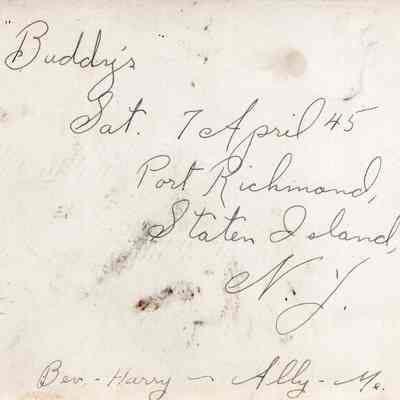 "Buddy's"
Sat. 7 April 45
Port Richmond,
Staten Island,
N.Y.
Bev. - Harry - Ally - Me.